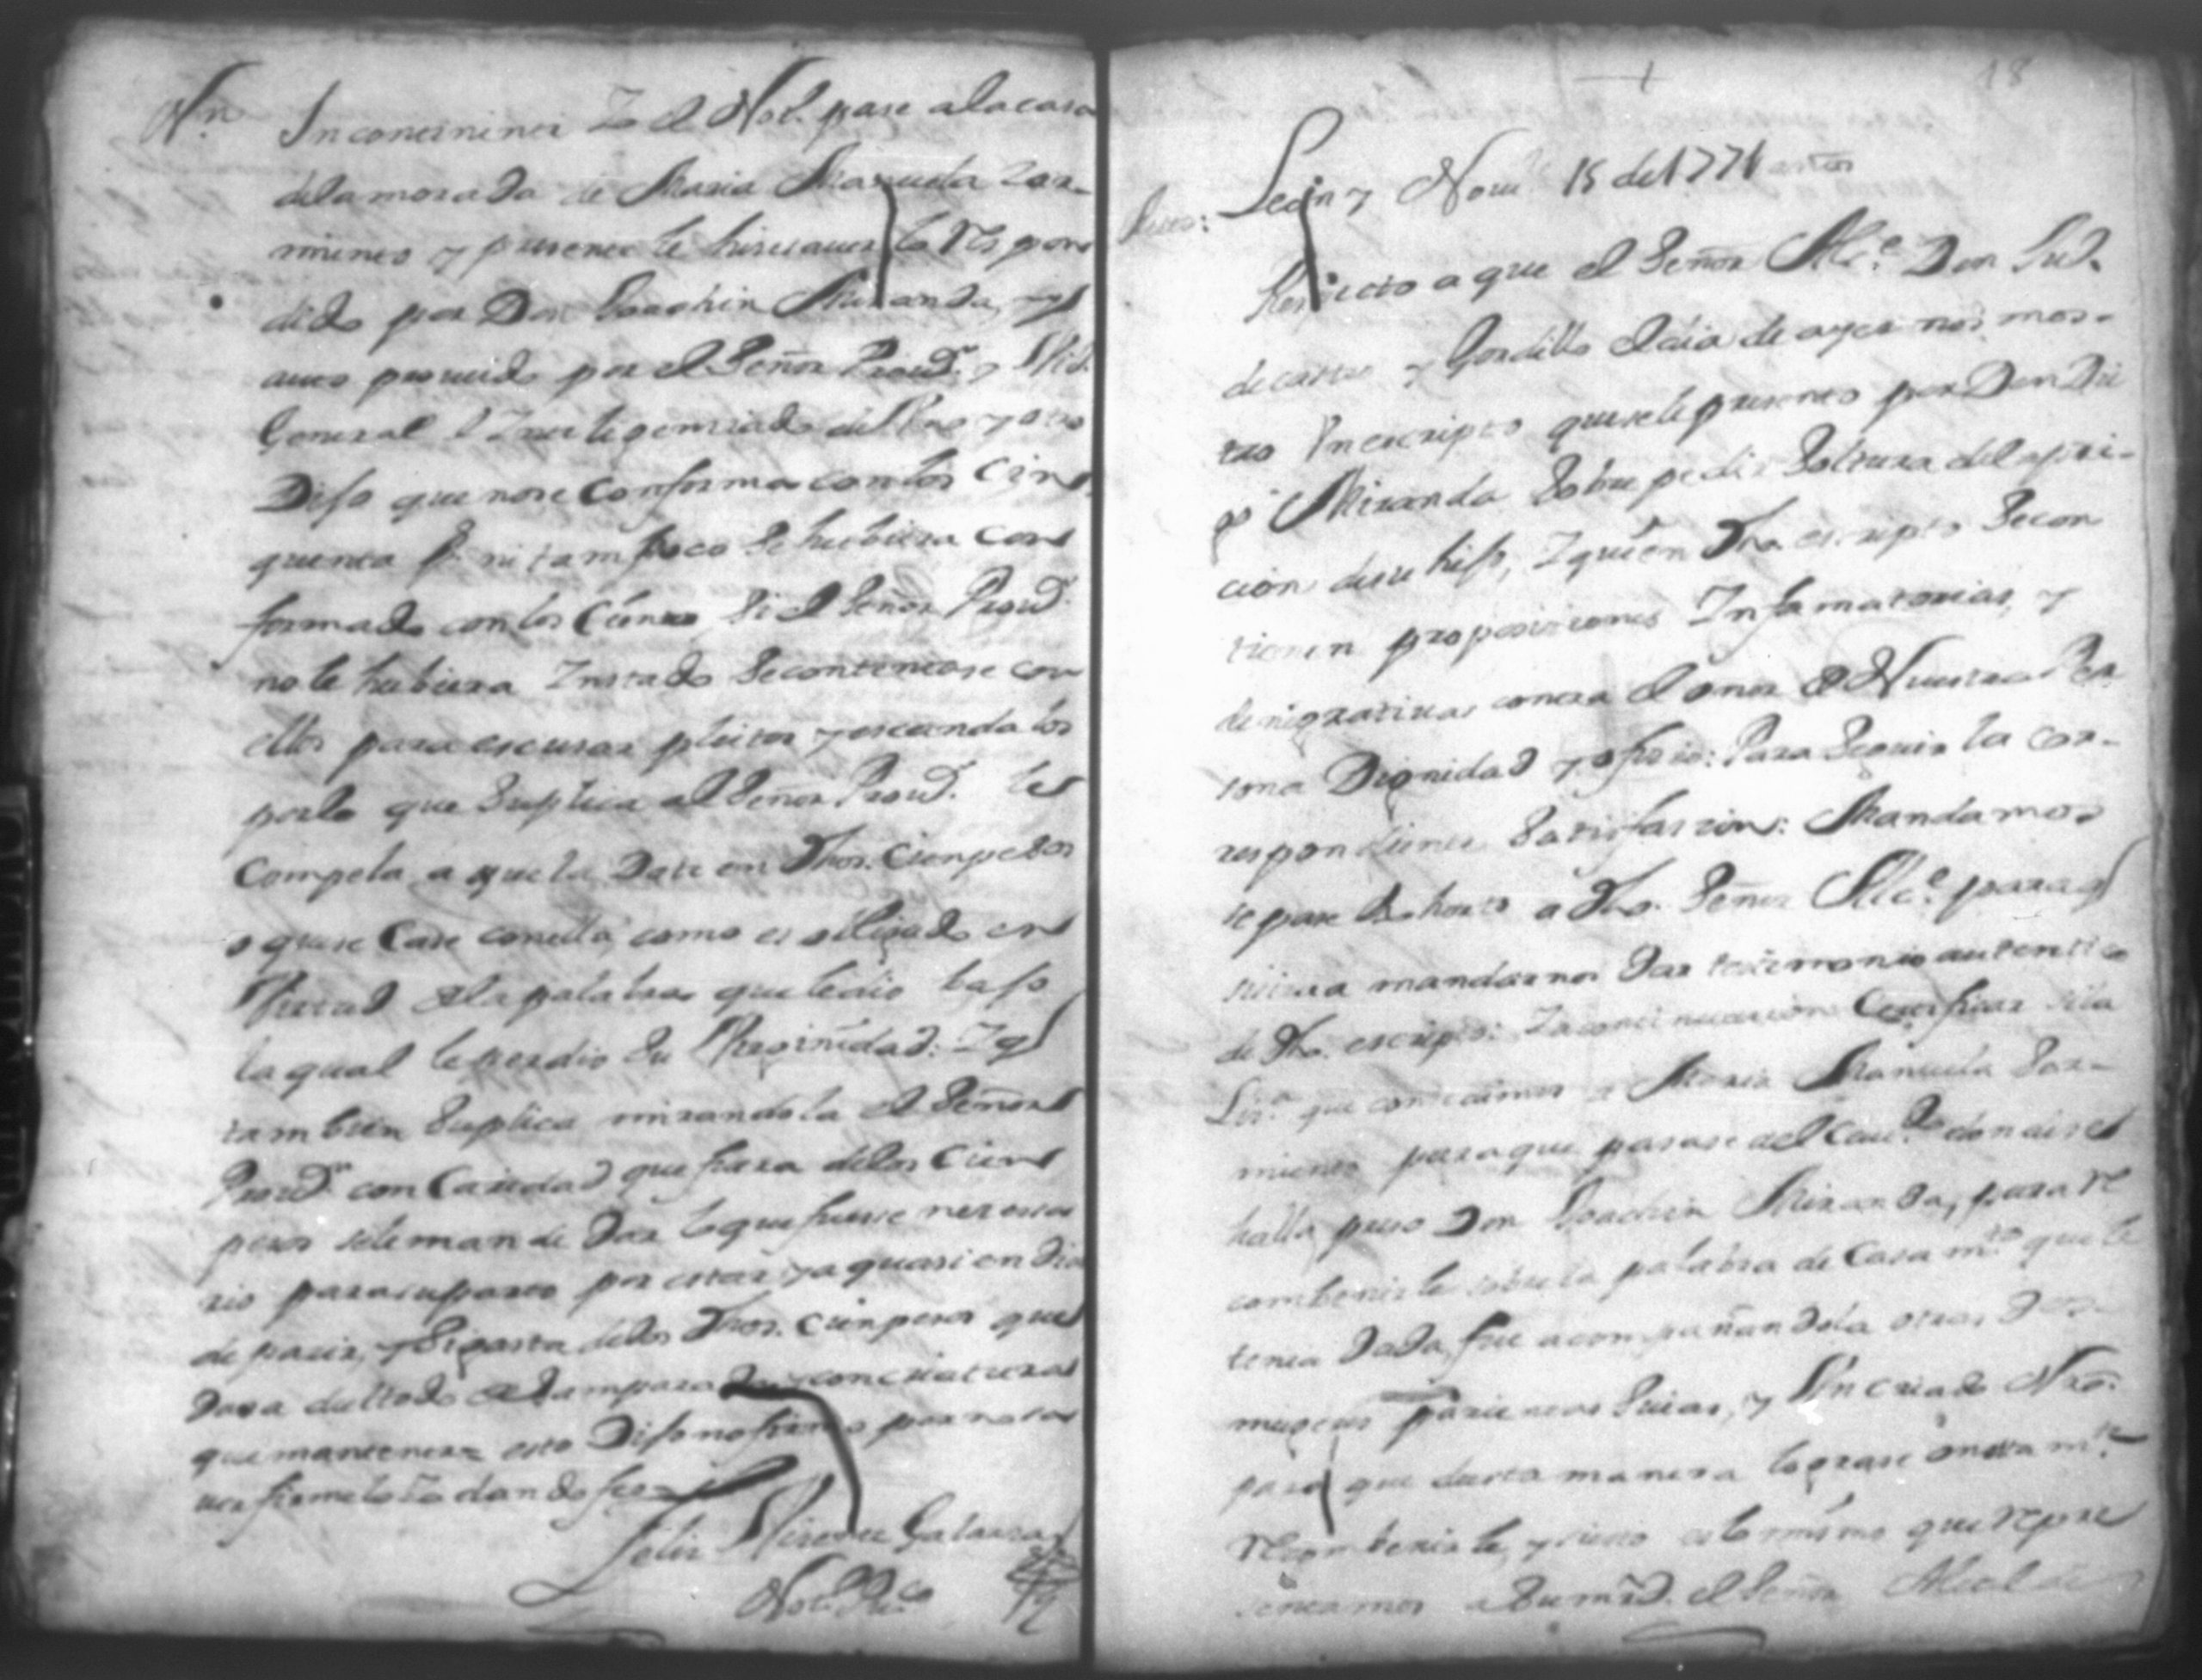 Nn
Inconcinenti Yo el Not. pase ala casa
dela morada de Maria Manuela Zar-
miento y presente le hise aver lo Respon
dido por Don Joachin Miranda, y el
auto proveido por el Señor Provr. y Vic.
General e Inteligenciada del Uno y otro
Dijo que nose Conforma con los Cin
quenta p. ni tampoco se hubiera Con
formado con los Ciento si el Señor Provr.
no le hubiera Instado se contentase con
ellos para escusar pleitos y escandalos
porlo que Suplica al Señor Provr. le
Compela a que la Dote en Dhos. Cien pesos
o que se Case conella, como es obligado en
Virtud dela palabra que le dio bajo
la qual le perdio su Virginidad: Y q
tambien Suplica mirandola el Señor
Provr. con Caridad que fuera delos Cien
pesos sele mande Dar lo que fuere nesesa
rio para su parto por estar ya quasi en dia
de parir, y si gasta delos Dhos. cien pesos que
dara deltodo desamparada y con criatura
que mantener esto Dijo no firmo por no sa
ver firmelo Yo dando fee
Felix Vicente Galarza
Not. Puco
18
Auto:
Leon y Nove. 15 de 1771 años
Respecto a que el Señor Alce. Don Jud.
de castro y Gordillo el dia de ayer nos mos-
tro Un escripto que se le presento por Don Die
go Miranda Sobre pedir Soltura dela pri-
cion de su hijo, Y que en Dho. escripto Secon
tienen proposiciones Infamatorias, y
denigrativas contra el onor de Nuestra Per
sona Dignidad y oficio: Para Seguir la cor-
respondiente Satisfaccion: Mandamos
se pase exhorto a Dho. Señor Alce. para q
sirva mandarnos Dar testimonio autentico
de Dho. escripto: Y a continuacion Certificar si la
Lisa. que consedimos a Maria Manuela Sar-
miento para que pasase al Cavdo. donde se
halla preso Don Joachin Miranda, para re
combenirle sobre la palabra de Casamto. que le
tenia Dada, fue acompañandola otras Dos
mugeres parientas suias, y Un criado Nro.
para que desta manera lograse onestamte.
recombenirle, y sieto es lo mismo que repre
sentamos a Su mrd. el Señor Alcalde